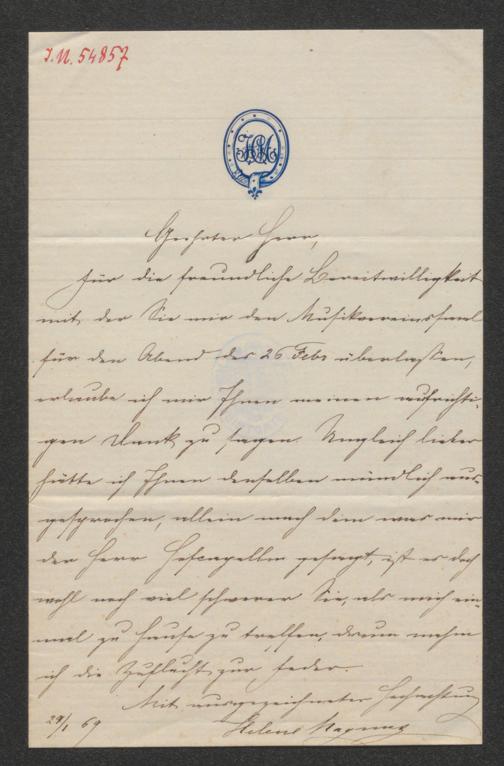 J.N. 54857
HM
Geehrter Herr,
Für die freundliche Bereitwilligkeit
mit der Sie mir den Musikvereinssaal
für den Abend des 26 Febr überlassen,
erlaube ich mir Ihnen meinen aufrichti-
gen Dank zu sagen. Ungleich lieber
hätte ich Ihnen denselben mündlich aus-
gesprochen, allein nach dem was mir
der Herr gesagt, ist es doch
wohl noch viel schwerer Sie, als mich ein-
mal zu Hause zu treffen, drum nehm
ich die Zuflucht zur Feder.
Mit ausgezeichneter Hochachtung
29/1 69 Helene Magnus